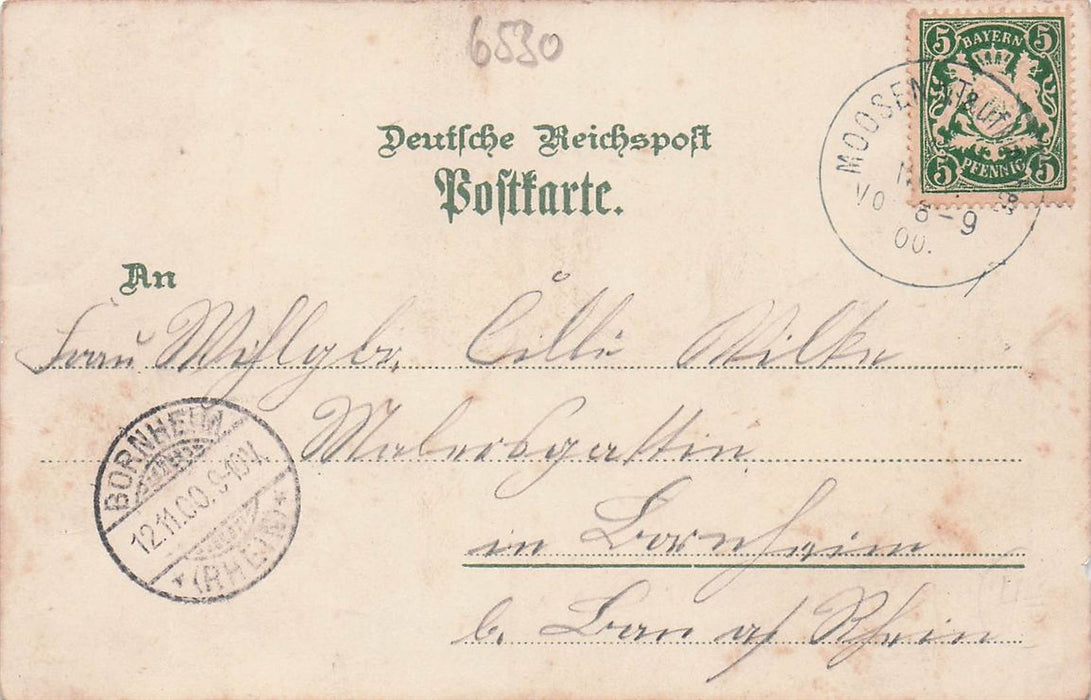 6530
5 BAYERN 5
5 PFENNIG 5
MOOSEN
VO 8-9
00.
Deutsche Reichspost
Postkarte.
An
Frau Wohlgb. Cilli Wilke
Malersgattin
in Bornheim
b. Bonn a/ Rhein
BORNHEIM
12.11.00. 9-10V.
* (RHEIN) *